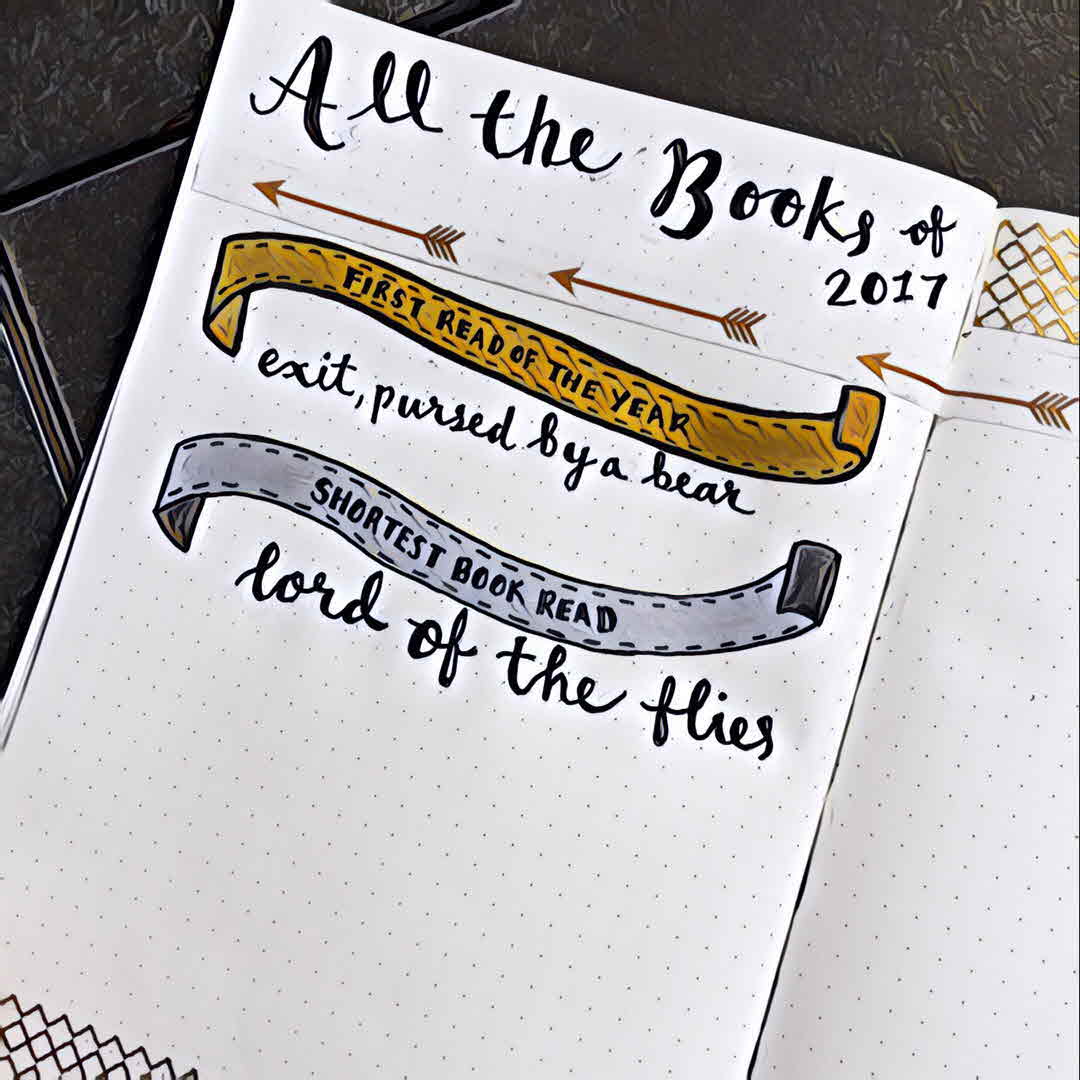 All the Books of
2017
FIRST READ OF THE YEAR
exit, pursed by a bear
SHORTEST BOOK READ
lord of the flies